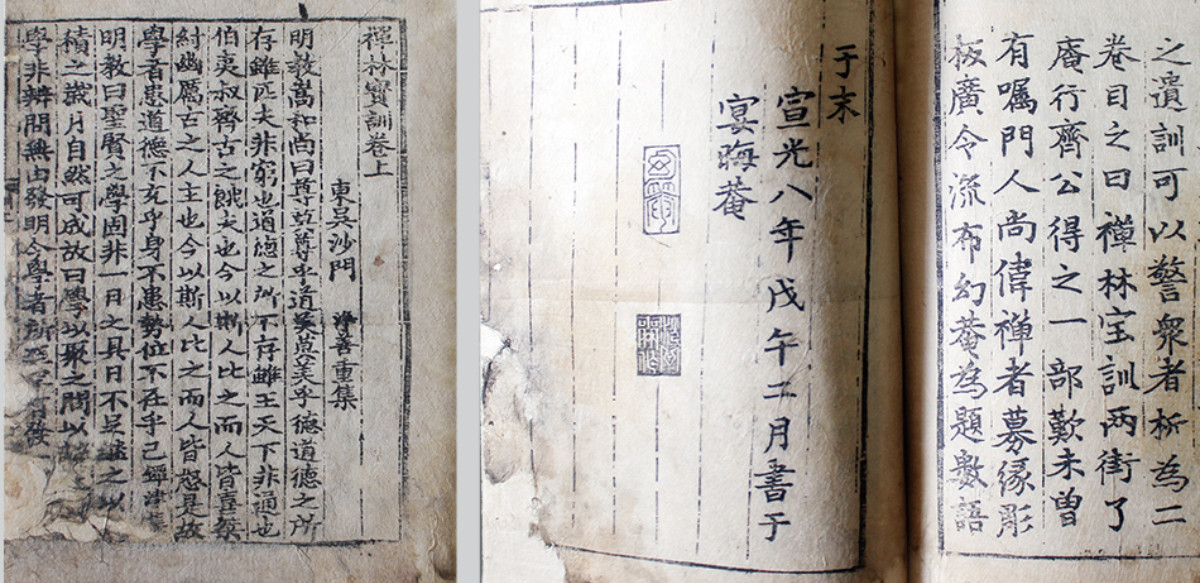 禪林寶訓卷上
東吳沙門 淨善重集
明教嵩和尚曰尊莫尊乎道美莫美乎德道德之所
存雖匹夫非窮也道德之所不存雖王天下非通也
伯夷叔齊古之餓夫也今以斯人比之而人皆喜桀
紂幽厲古之人主也今以斯人比之而人皆怒是故
學者患道德不充乎身不患勢位不在乎己鐔津集
明教曰聖賢之學固非一日之具日不足繼之以
積之歲月自然可成故曰學以聚之問以
學非辨問無由發明今學者所至罕有發
之遺訓可以警衆者析為二
卷目之曰禪林宝訓两街了
庵行齊公得之一部歎未曾
有嘱門人尚偉禪者募緣彫
板廣令流布幻菴為題數語
于末
宣光八年戊午三月書于
宴晦菴